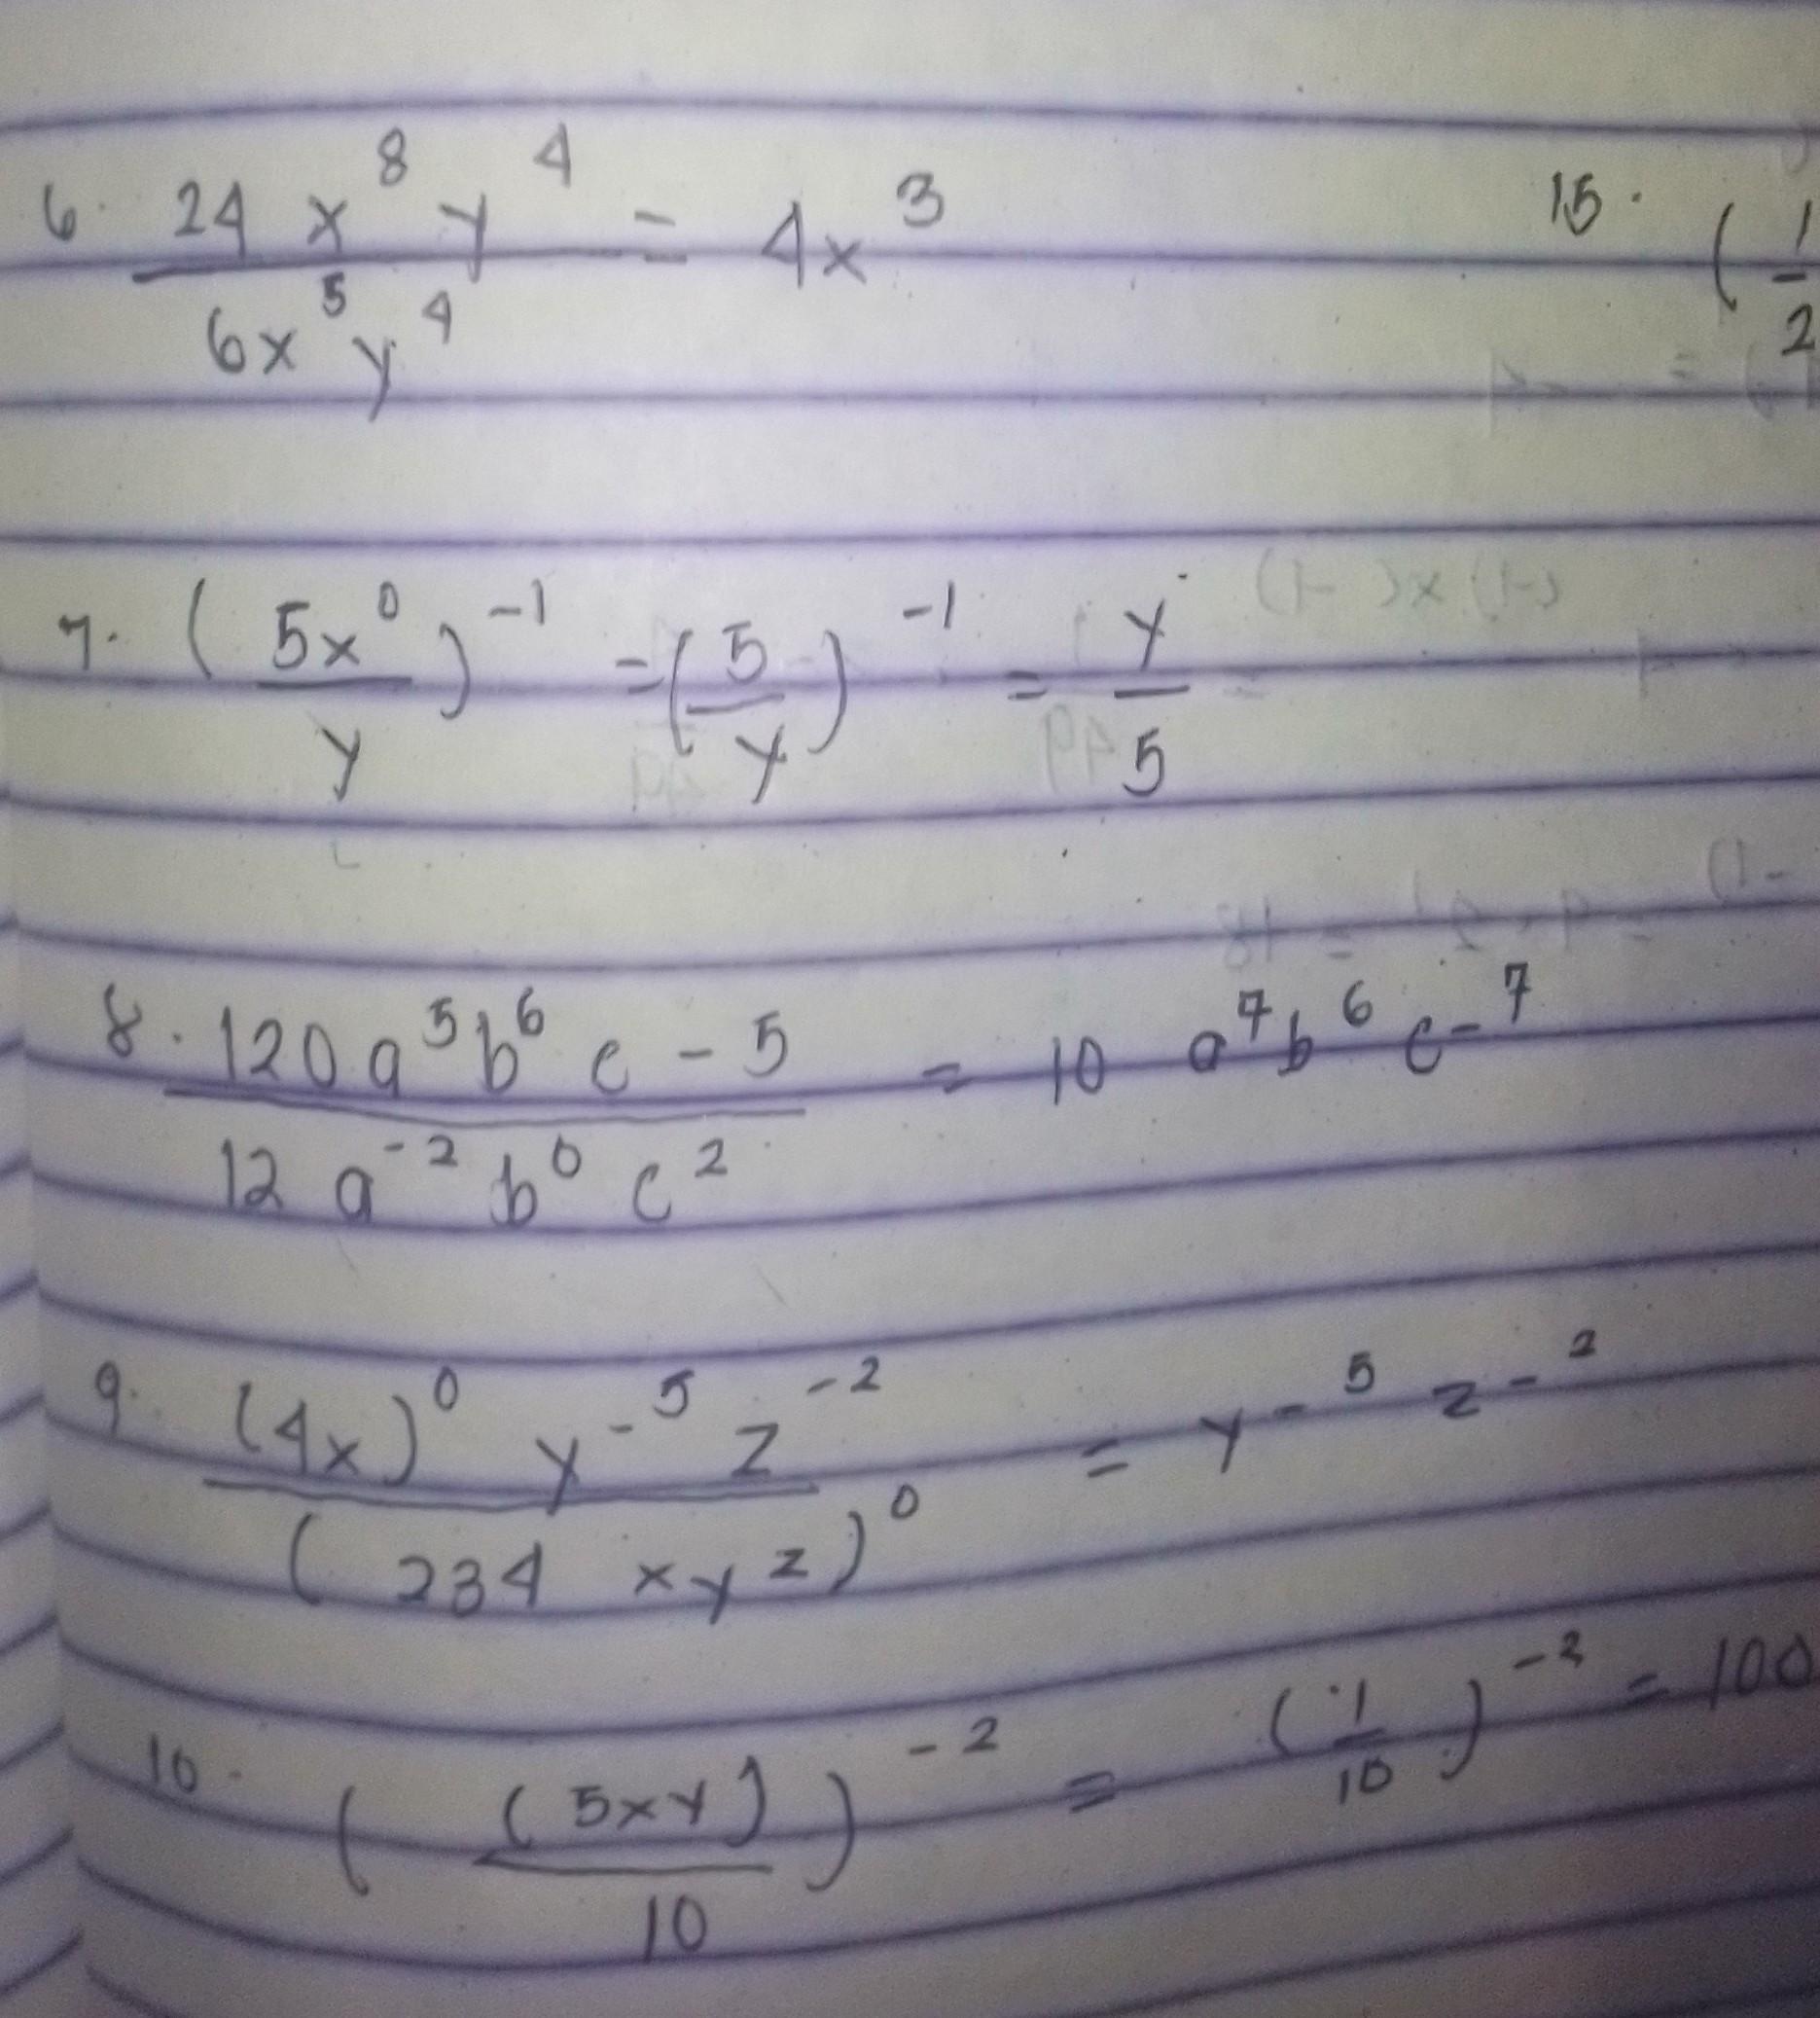 6. 24 x⁸ y⁴ / 6x⁵y⁴ = 4x³
15. (1/2
7. (5x⁰/y)⁻¹ = (5/y)⁻¹ = y/5
8. 120a⁵b⁶c-5 / 12a⁻²b⁰c² = 10 a⁷b⁶c⁻⁷
9. (4x)⁰ y⁻⁵ z⁻² / (234 xyz)⁰ = y⁻⁵ z⁻²
10. ((5xy)/10)⁻² = (1/10)⁻² = 100